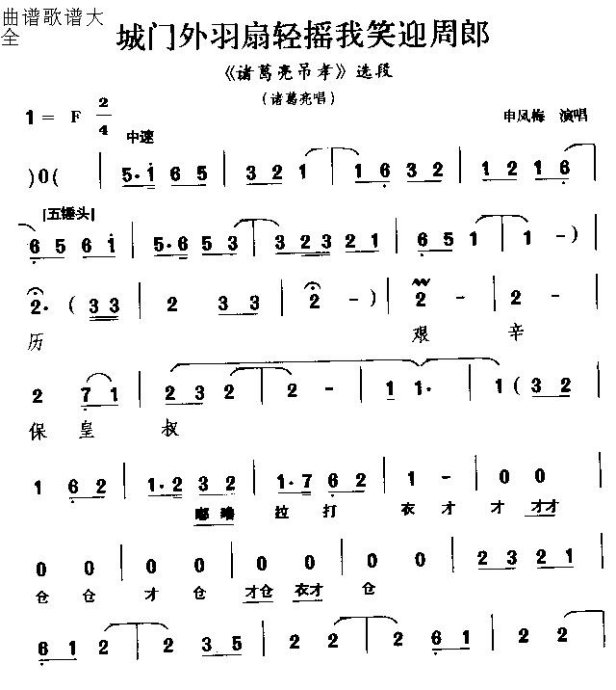 曲谱歌谱大
全
城门外羽扇轻摇我笑迎周郎
《诸葛亮吊孝》选段
(诸葛亮唱)
1 = F 2/4
中速
申凤梅 演唱
)0( | 5·i 65 | 321 | 1632 | 1216
[五锤头]
656i | 5·653 | 32321 | 651 | 1 -)
2· (33 | 2 33 | 2 -) | 2 - | 2 -
历 艰 辛
2 71 | 2322 | 2 - | 1 1· | 1 (32
保 皇 叔
1 62 | 1·2 32 | 1·7 62 | 1 - | 0 0
嘟噜 拉 打 衣 才 才 才才
0 0 | 0 0 | 0 0 | 0 0 | 23 21
仓 仓 才 仓 才仓 衣才 仓
61 2 | 2 35 | 2 2 | 2 61 | 2